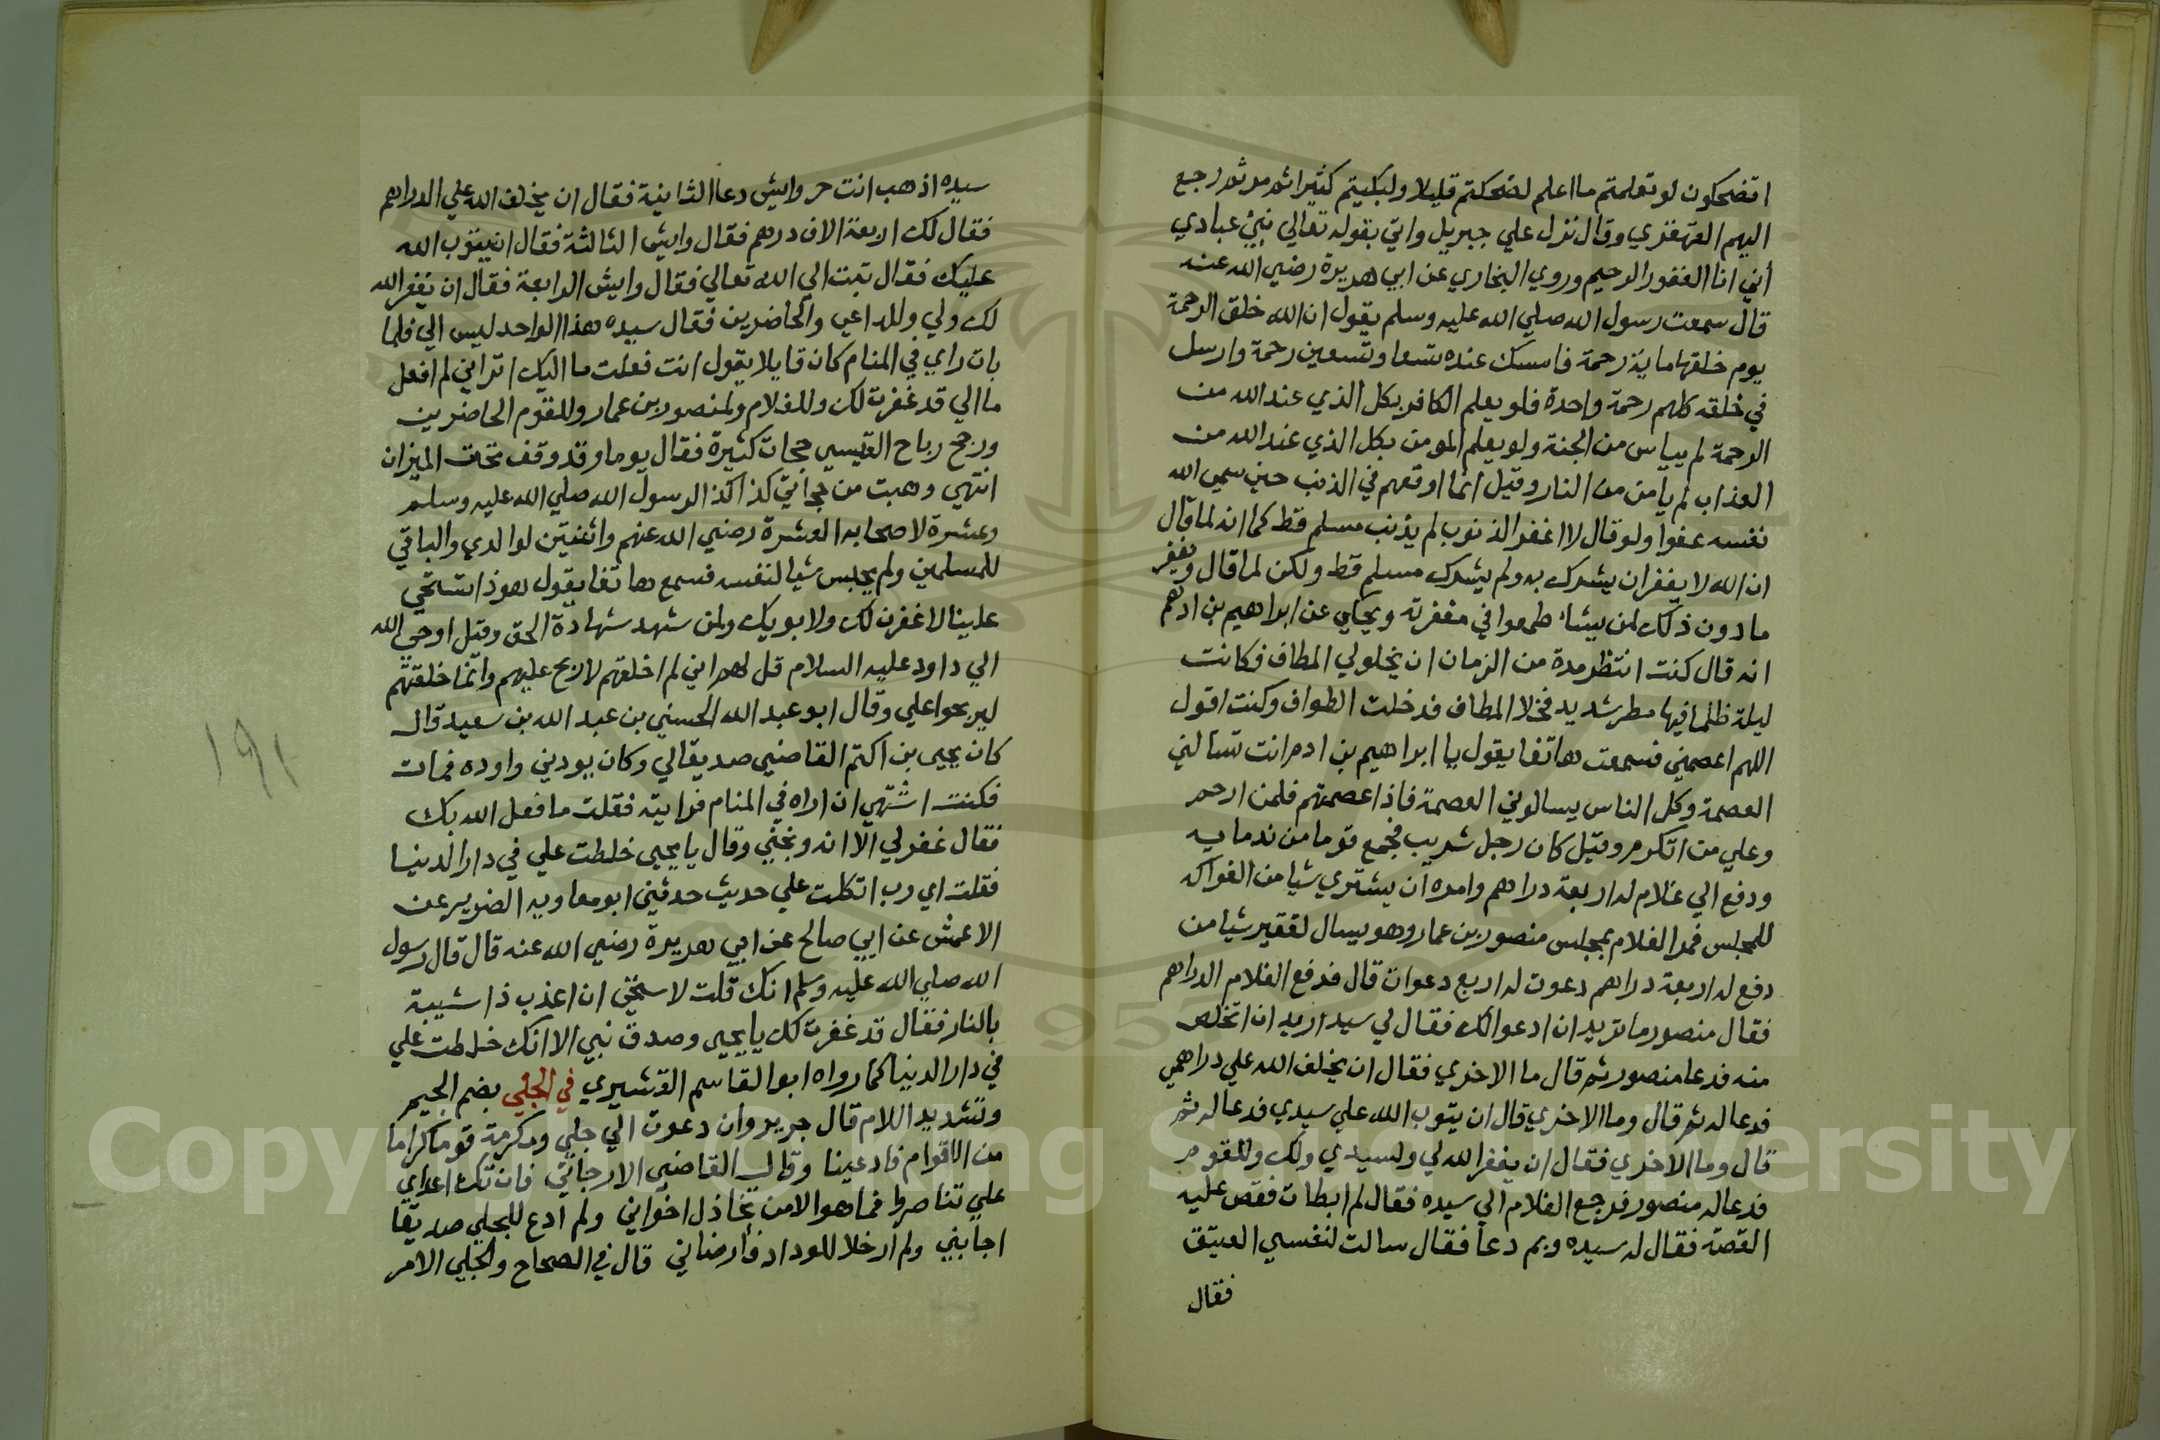 اتضحكون لو تعلمتم ما اعلم لضحكتم قليلا ولبكيتم كثيرا ثم مر ثم رجع
اليهم القهقري وقال نزل علي جبريل واتي بقوله تعالي نبئ عبادي
أني انا الغفور الرحيم وروي البخاري عن ابي هريرة رضي الله عنه
قال سمعت رسول الله صلي الله عليه وسلم يقول ان الله خلق الرحمة
يوم خلقها ماية رحمة فامسك عنده تسعا وتسعين رحمة وارسل
في خلقه كلهم رحمة واحدة فلو يعلم الكافر بكل الذي عند الله من
الرحمة لم يياس من الجنة ولو يعلم المومن بكل الذي عند الله من
العذاب لم يامن من النار وقيل انما اوقعهم في الذنب حين سمي الله
نفسه عفوا ولو قال لا اغفر الذنوب لم يذنب مسلم قط كما انه لما قال
ان الله لا يغفر ان يشرك به ولم يشرك مسلم قط ولكن لما قال ويغفر
ما دون ذلك لمن يشاء طمعوا في مغفرته ويحكي عن ابراهيم بن ادهم
انه قال كنت انتظر مدة من الزمان ان يخلو لي المطاف فكانت
ليلة ظلما فيها مطر شديد فخلا المطاف فدخلت الطواف وكنت اقول
اللهم اعصمني فسمعت هاتفا يقول يا ابراهيم بن ادهم انت تسالني
العصمة وكل الناس يسالوني العصمة فاذا عصمتهم فلمن ارحم
وعلي من اتكرم وقيل كان رجل شريب فجمع قوما من ندمايه
ودفع الي غلام له اربعة دراهم وامره ان يشتري شيا من الفواكه
للمجلس فمر الغلام بمجلس منصور بن عمار وهو يسال لفقير شيا من
دفع له اربعة دراهم دعوت له اربع دعوات قال فدفع الغلام الدراهم
فقال منصور ما تريد ان ادعوا لك فقال لي سيد اريد ان اتخلص
منه فدعا منصور ثم قال ما الاخري فقال ان يخلف الله علي دراهمي
فدعا له ثم قال وما الاخري قال ان يتوب الله علي سيدي فدعا له ثم
قال وما الاخري فقال ان يغفر الله لي ولسيدي ولك وللقوم
فدعا له منصور فرجع الغلام الي سيده فقال لم ابطات فقص عليه
القصة فقال له سيده وبم دعا فقال سالت لنفسي العتق
فقال
سيده اذهب انت حر وايش دعا الثانية فقال ان يخلف الله علي الدراهم
فقال لك اربعة الاف درهم فقال وايش الثالثة فقال ان يتوب الله
عليك فقال تبت الي الله تعالي فقال وايش الرابعة فقال ان يغفر الله
لك ولي وللداعي والحاضرين فقال سيده هذا الواحد ليس الي فلما
بات راي في المنام كان قايلا يقول انت فعلت ما اليك اتراني لم افعل
ما الي قد غفرت لك وللغلام ولمنصور بن عمار وللقوم الحاضرين
ورجح رباح القيسي حجات كثيرة فقال يوما وقد وقف تحت الميزان
انتهي وهبت من حجاتي كذا كذا لرسول الله صلي الله عليه وسلم
وعشرة لاصحابه العشرة رضي الله عنهم واثنتين لوالدي والباقي
للمسلمين ولم يحبس شيا لنفسه فسمع هاتفا يقول هوذا تسخي
علينا لاغفرن لك ولابويك ولمن شهد شهادة الحق وقيل اوحي الله
الي داود عليه السلام قل لهم اني لم اخلقهم لاربح عليهم وانما خلقتهم
ليربحوا علي وقال ابو عبد الله الحسني بن عبد الله بن سعيد قال
كان يحيي بن اكتم القاضي صديقا لي وكان يودني واوده فمات
فكنت اشتهي ان اراه في المنام فرايته فقلت ما فعل الله بك
فقال غفر لي الا انه وبخني وقال يا يحيي خلطت علي في دار الدنيا
فقلت اي رب اتكلت علي حديث حدثني ابو معاويه الضرير عن
الاعمش عن ابي صالح عن ابي هريرة رضي الله عنه قال قال رسول
الله صلي الله عليه وسلم انك قلت لاستحي ان اعذب ذا شيبة
بالنار فقال قد غفرت لك يا يحيي وصدق نبي الا انك خلطت علي
في دار الدنيا كما رواه ابو القاسم القشيري في الجلي بضم الجيم
وتشديد اللام قال جرير وان دعوت الي جلي ومكرمة قوما كراما
من الاقوام فادعينا وقال القاضي الارجاني فان تك اعداي
علي تناصرا فما هوا الا من تخاذل اخواني ولم ادع للجلي صديقا
اجابني ولم ارخلا للوداد فارضاني قال في الصحاح والجلي الامر
191
Copyright © King Saud University
1957